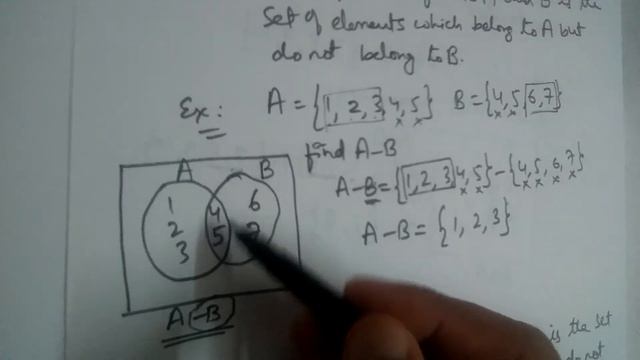 is the
set of elements which belong to A but
do not belong to B.
Ex: A = {1, 2, 3, 4, 5} B = {4, 5, 6, 7}
find A-B
A-B = {1, 2, 3, 4, 5} - {4, 5, 6, 7}
A-B = {1, 2, 3}
A B
1 4 6
2 5 7
3
A-B
is the set
do not